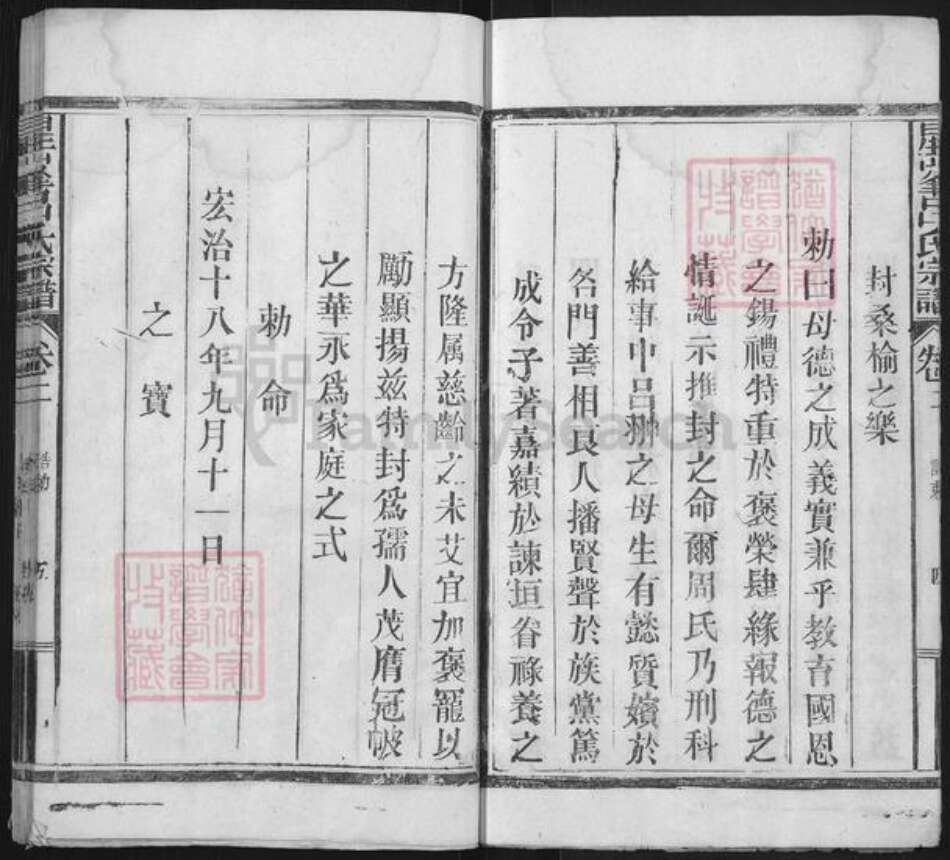 封桑榆之樂
勅曰母德之成義實兼乎教育國恩
之錫禮特重於褒榮肆緣報德之
情誕示推封之命爾周氏乃刑科
給事中呂翀之母生有懿質嬪於
名門善相良人播賢聲於族黨篤
成令子著嘉績於諫垣眷祿養之
方隆属慈齡之未艾宜加褒寵以
勵顯揚兹特封爲孺人茂膺冠帔
之華永爲家庭之式
勅命
宏治十八年九月十一日
之寶
呂氏宗譜
卷二
FamilySearch